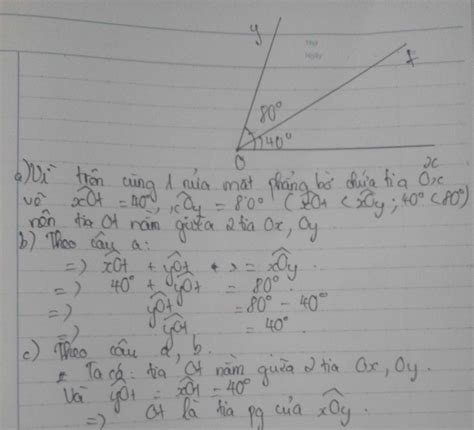 y
Thứ
Ngày
t
80°
40°
O
x
a) Vì trên cùng 1 nửa mặt phẳng bờ chứa tia Ox
và xOt = 40°, xOy = 80° (xOt < xOy; 40° < 80°)
nên tia Ot nằm giữa 2 tia Ox, Oy
b) Theo câu a:
=> xOt + yOt = xOy.
=> 40° + yOt = 80°
=> yOt = 80° - 40°
=> yOt = 40°.
c) Theo câu a, b.
Ta có: tia Ot nằm giữa 2 tia Ox, Oy.
Và yOt = xOt = 40°
=> Ot là tia pg của xOy.